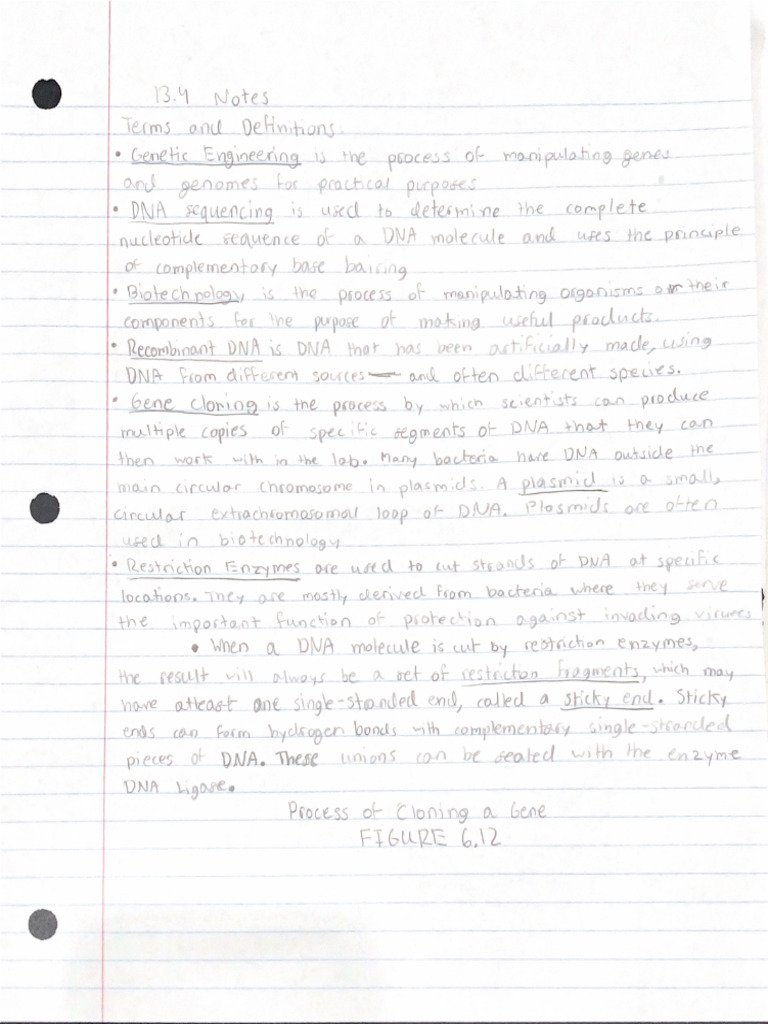 13.4 Notes
Terms and Definitions:
• Genetic Engineering is the process of manipulating genes
and genomes for practical purposes
• DNA sequencing is used to determine the complete
nucleotide sequence of a DNA molecule and uses the principle
of complementary base bairing
• Biotechnology, is the process of manipulating organisms or their
components for the purpose of making useful products.
• Recombinant DNA is DNA that has been artificially made, using
DNA from different sources — and often different species.
• Gene Cloning is the process by which scientists can produce
multiple copies of specific segments of DNA that they can
then work with in the lab. Many bacteria have DNA outside the
main circular chromosome in plasmids. A plasmid is a small,
circular extrachromosomal loop of DNA. Plasmids are often
used in biotechnology
• Restriction Enzymes are used to cut strands of DNA at specific
locations. They are mostly derived from bacteria where they serve
the important function of protection against invading viruses
• When a DNA molecule is cut by restriction enzymes,
the result will always be a set of restriction fragments, which may
have atleast one single-stranded end, called a sticky end. Sticky
ends can form hydrogen bonds with complementary single-stranded
pieces of DNA. These unions can be sealed with the enzyme
DNA Ligase.
Process of Cloning a Gene
FIGURE 6.12